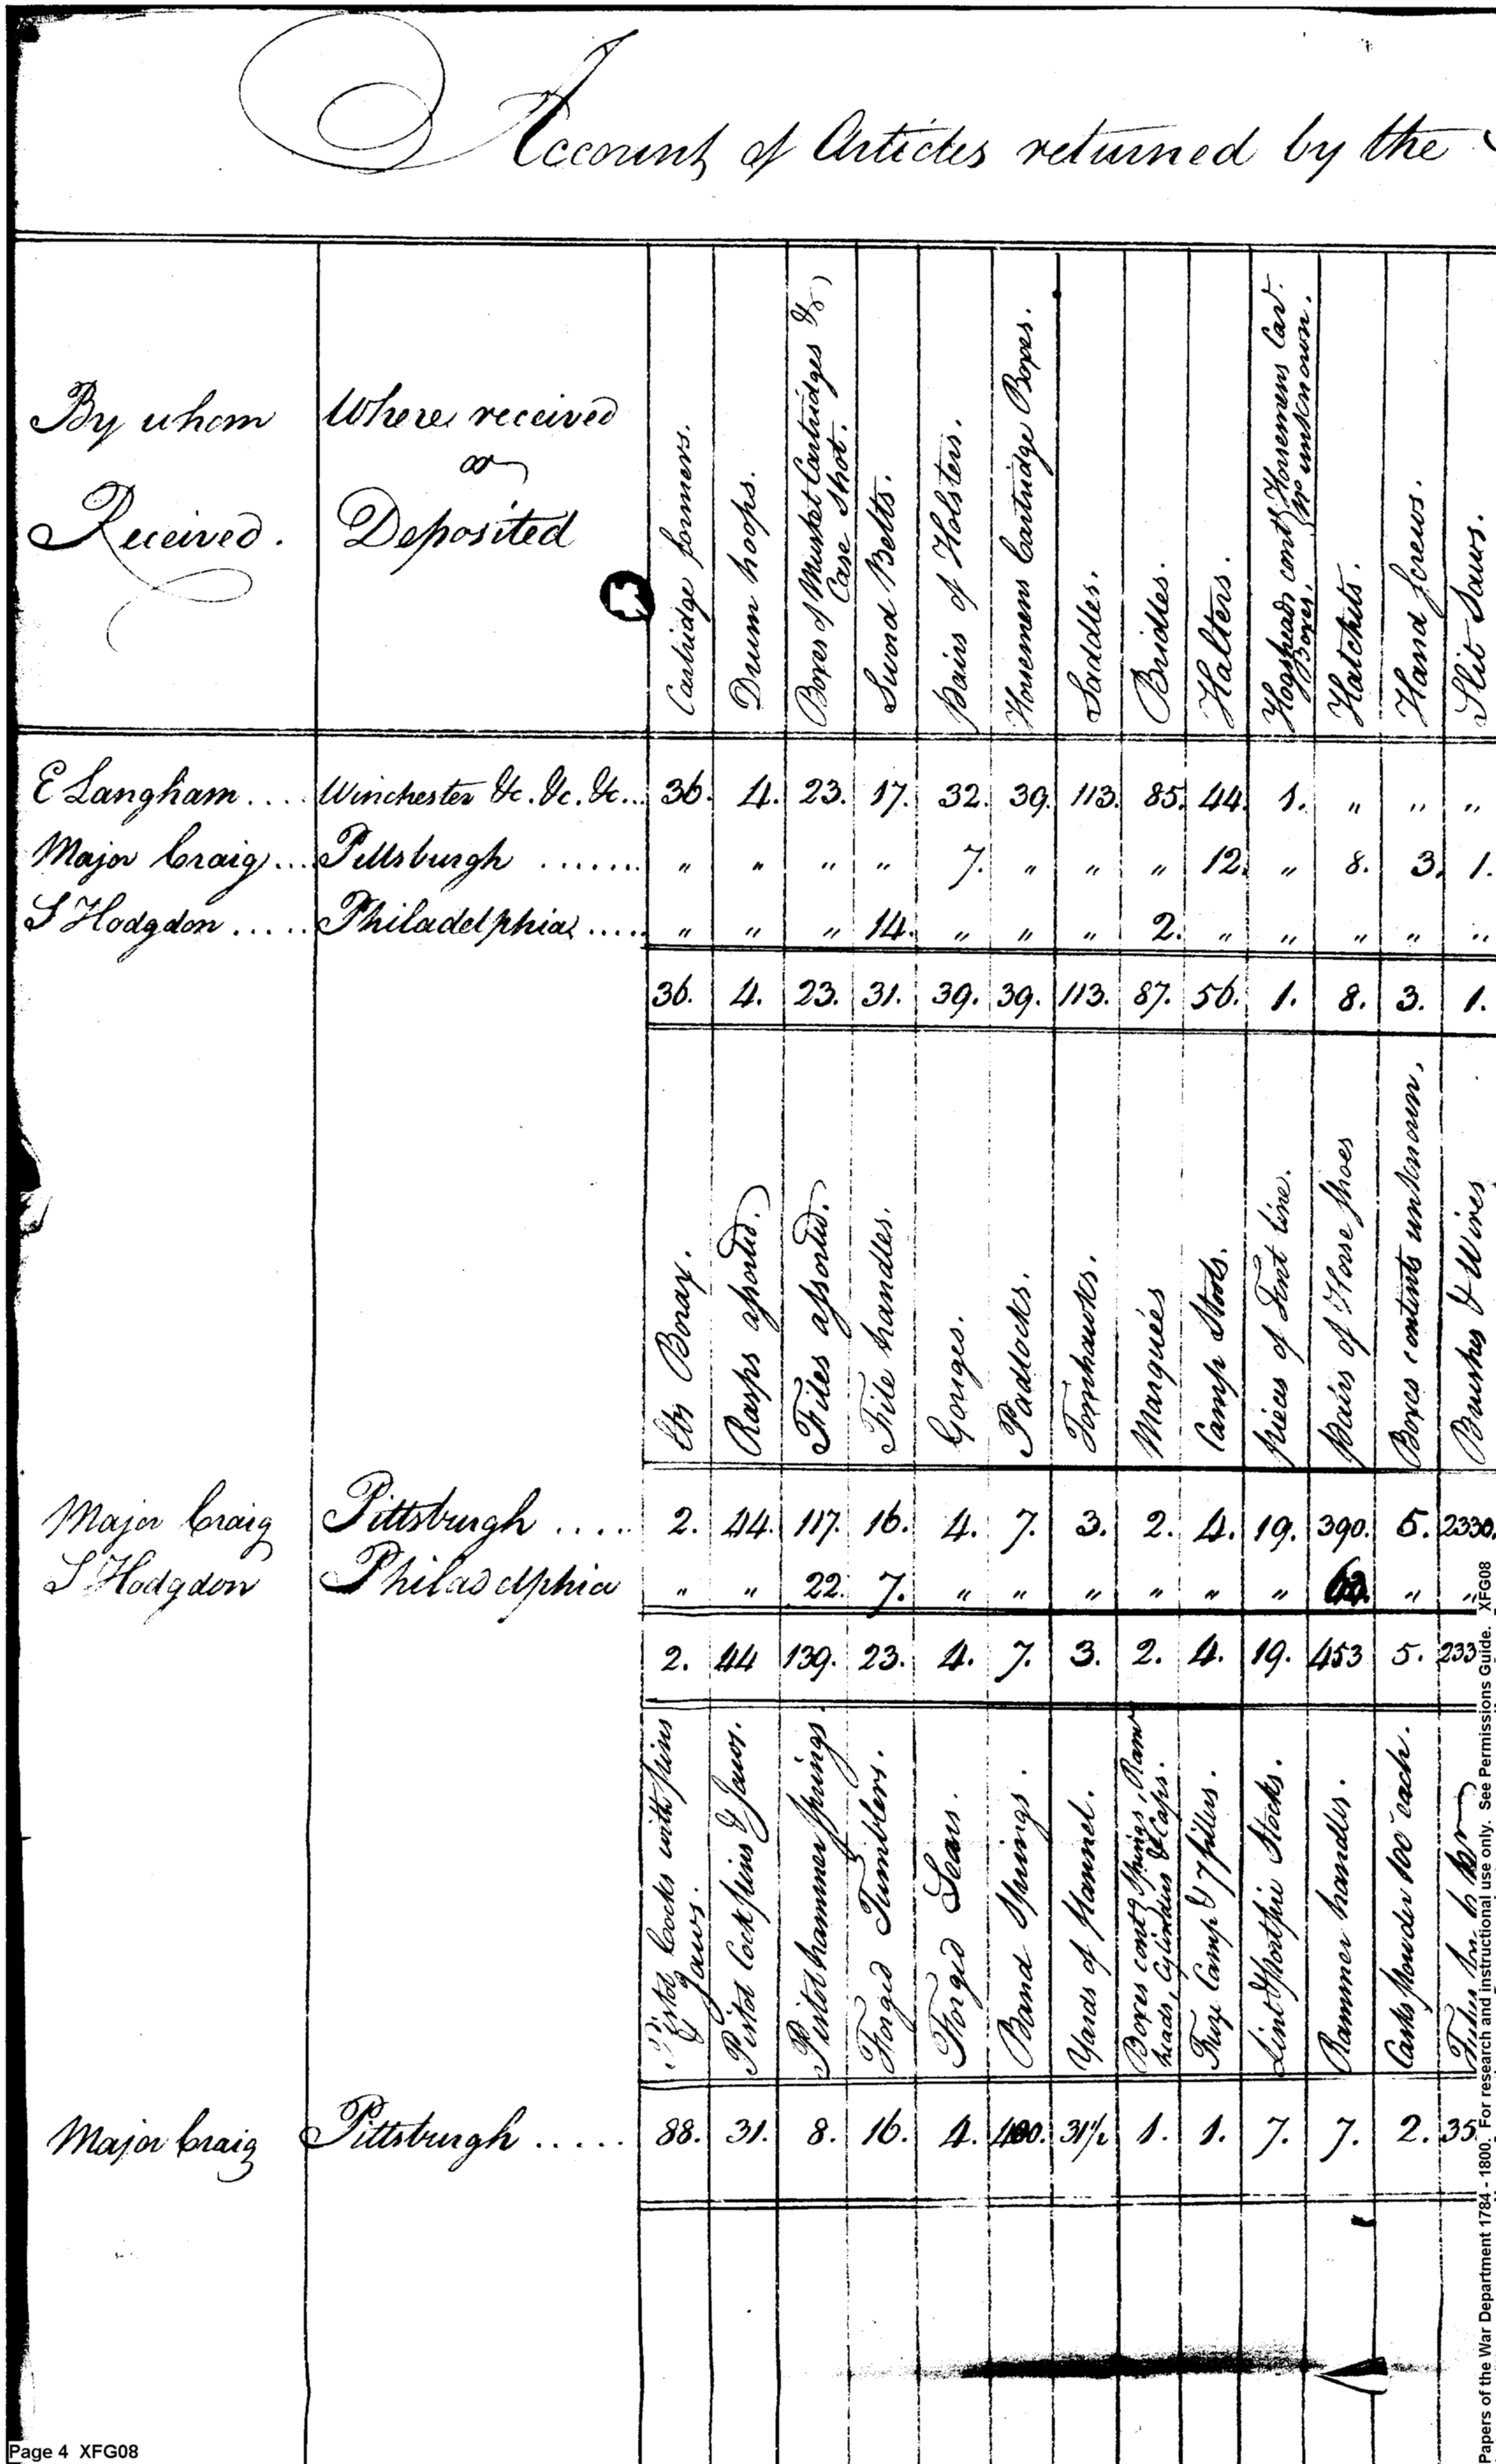 Account of Articles returned by the
By whom
Received.
Where received
or
Deposited
Cartridge formers.
Drum hoops.
Boxes of Musket Cartridges &
Case Shot.
Sword Belts.
pairs of Holsters.
Horsemens Cartridge Boxes.
Saddles.
Bridles.
Halters.
Hogsheads contg Horsemens Car.
Boxes, No unknown.
Hatchets.
Hand Screws.
Slit Saws.
E Langham .... Winchester &c. &c. &c... 36. 4. 23. 17. 32. 39. 113. 85. 44. 1. " " "
Major Craig ... Pittsburgh ....... " " " " 7. " " " 12. " 8. 3. 1.
S Hodgdon ..... Philadelphia ..... " " " 14. " " " 2. " " " " "
36. 4. 23. 31. 39. 39. 113. 87. 56. 1. 8. 3. 1.
lbs Borax.
Rasps assorted.
Files assorted.
File handles.
Gouges.
Padlocks.
Tomhawks.
Marquées
Camp Stools.
pieces of Tent line.
pairs of Horse Shoes
Boxes contents unknown,
Brushes & Wires
Major Craig Pittsburgh .... 2. 44. 117. 16. 4. 7. 3. 2. 4. 19. 390. 5. 2330.
S Hodgdon Philadelphia " " 22. 7. " " " " " " " "
2. 44 139. 23. 4. 7. 3. 2. 4. 19. 453 5. 233
Pistol Cocks with pins
& Jaws.
Pistol Cock pins & Jaws.
Pistol hammer Springs.
Forged Tumblers.
Forged Sears.
Band Springs.
Yards of flannel.
Boxes contg Springs, Ram
heads, Cylinders & Caps.
Fuze Camp & 7 fillers.
Lint & Portfire Stocks.
Rammer handles.
Casks Powder 100 each.
Major Craig Pittsburgh ..... 88. 31. 8. 16. 4. 400. 31½ 1. 1. 7. 7. 2. 35
Page 4 XFG08
Papers of the War Department 1784 - 1800. For research and instructional use only. See Permissions Guide. XFG08